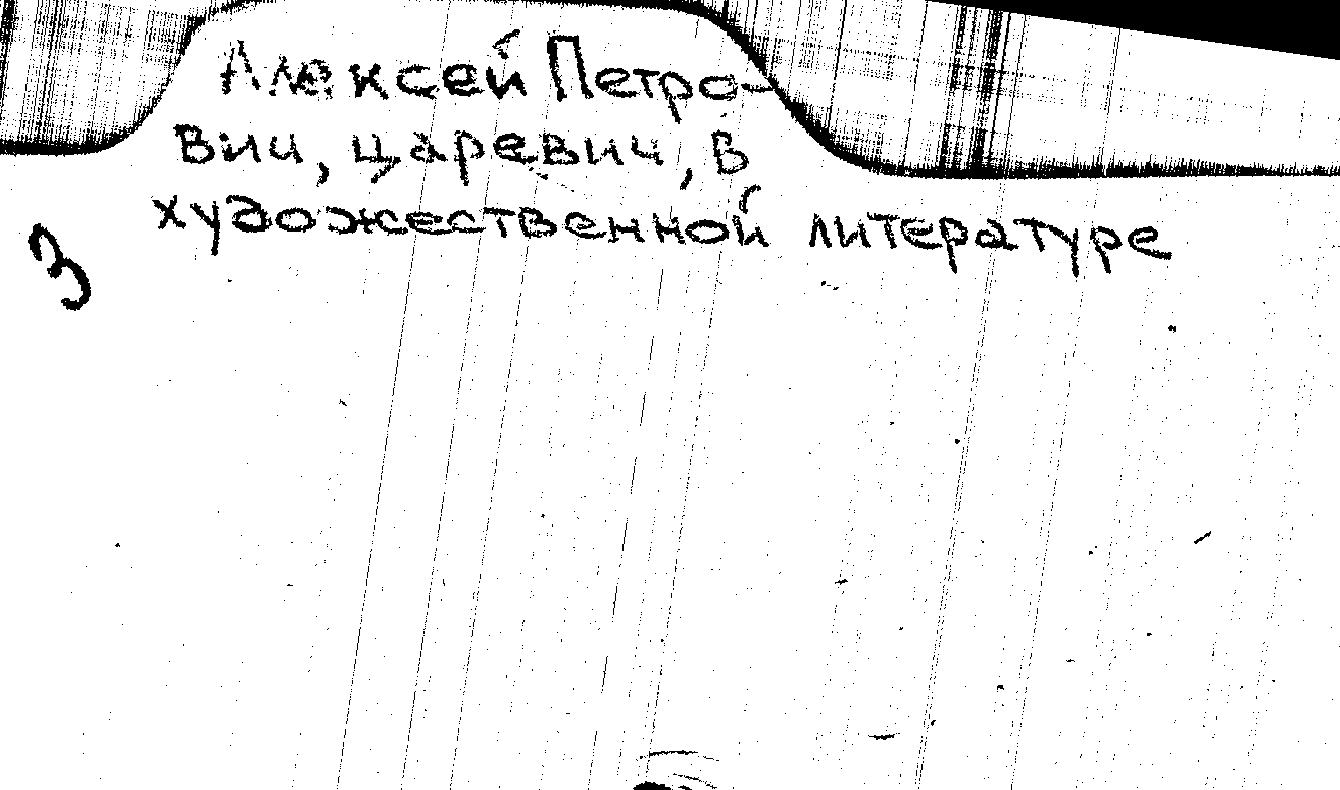 Алексей Петро-
вич, царевич, в
художественной литературе
З